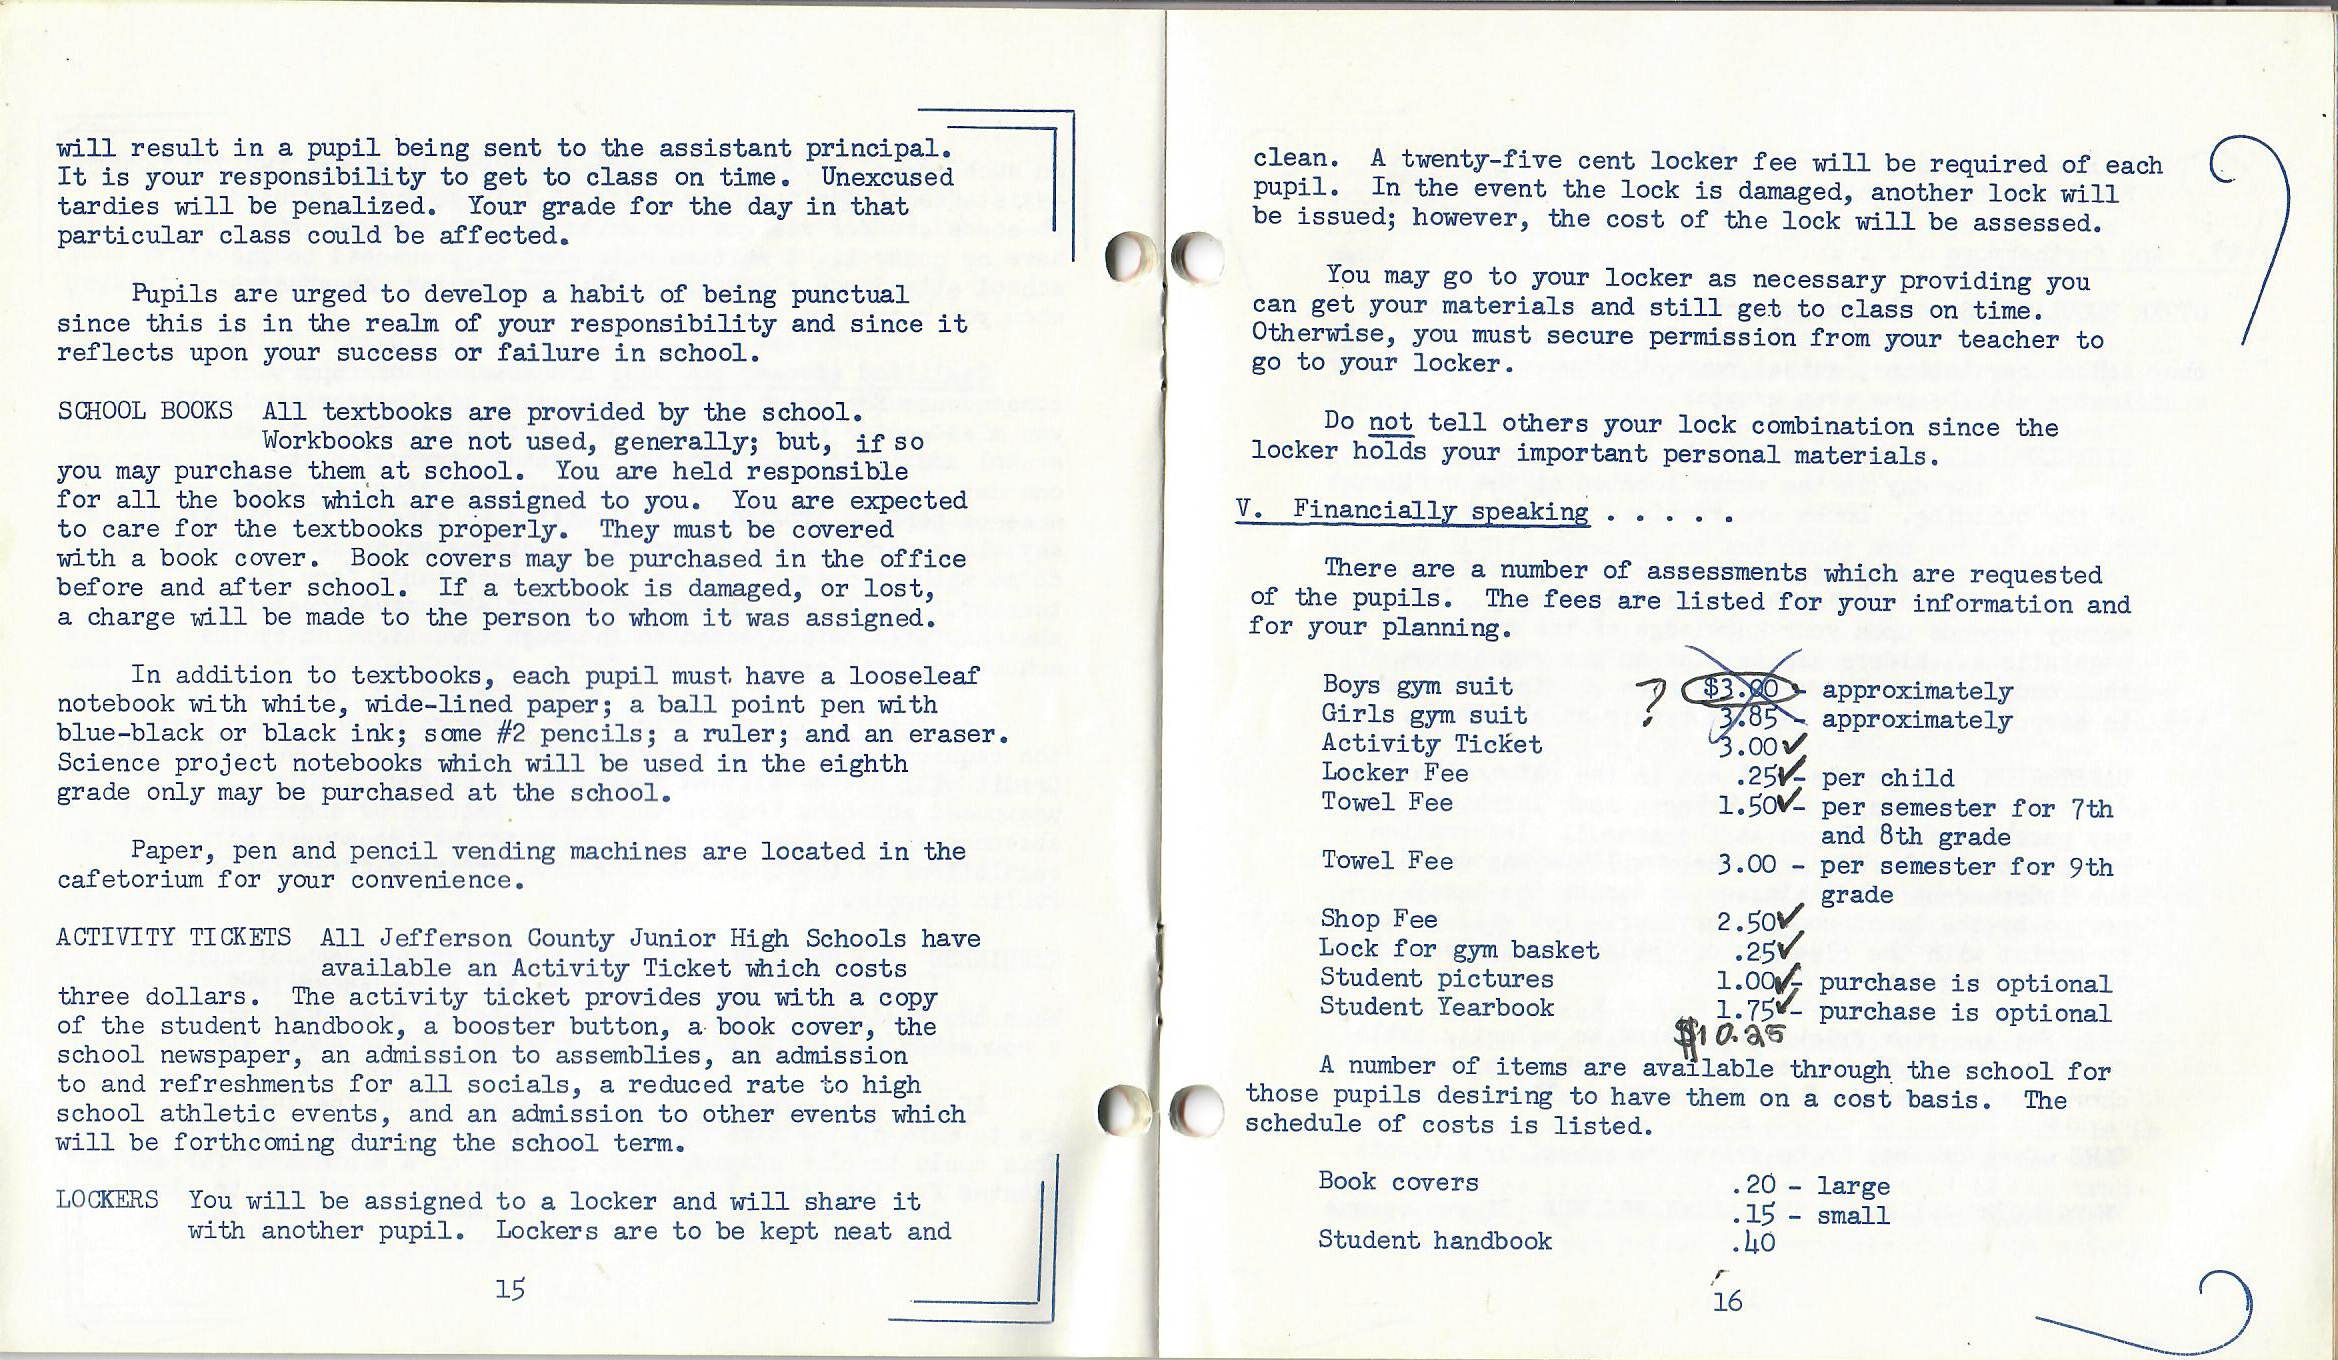 will result in a pupil being sent to the assistant principal.
It is your responsibility to get to class on time. Unexcused
tardies will be penalized. Your grade for the day in that
particular class could be affected.
Pupils are urged to develop a habit of being punctual
since this is in the realm of your responsibility and since it
reflects upon your success or failure in school.
SCHOOL BOOKS All textbooks are provided by the school.
Workbooks are not used, generally; but, if so
you may purchase them at school. You are held responsible
for all the books which are assigned to you. You are expected
to care for the textbooks properly. They must be covered
with a book cover. Book covers may be purchased in the office
before and after school. If a textbook is damaged, or lost,
a charge will be made to the person to whom it was assigned.
In addition to textbooks, each pupil must have a looseleaf
notebook with white, wide-lined paper; a ball point pen with
blue-black or black ink; some #2 pencils; a ruler; and an eraser.
Science project notebooks which will be used in the eighth
grade only may be purchased at the school.
Paper, pen and pencil vending machines are located in the
cafetorium for your convenience.
ACTIVITY TICKETS All Jefferson County Junior High Schools have
available an Activity Ticket which costs
three dollars. The activity ticket provides you with a copy
of the student handbook, a booster button, a book cover, the
school newspaper, an admission to assemblies, an admission
to and refreshments for all socials, a reduced rate to high
school athletic events, and an admission to other events which
will be forthcoming during the school term.
LOCKERS You will be assigned to a locker and will share it
with another pupil. Lockers are to be kept neat and
15
clean. A twenty-five cent locker fee will be required of each
pupil. In the event the lock is damaged, another lock will
be issued; however, the cost of the lock will be assessed.
You may go to your locker as necessary providing you
can get your materials and still get to class on time.
Otherwise, you must secure permission from your teacher to
go to your locker.
Do not tell others your lock combination since the
locker holds your important personal materials.
V. Financially speaking . . . . .
There are a number of assessments which are requested
of the pupils. The fees are listed for your information and
for your planning.
Boys gym suit ? $3.00 - approximately
Girls gym suit 3.85 - approximately
Activity Ticket 3.00 ✓
Locker Fee .25 ✓ - per child
Towel Fee 1.50 ✓ - per semester for 7th
and 8th grade
Towel Fee 3.00 - per semester for 9th
grade
Shop Fee 2.50 ✓
Lock for gym basket .25 ✓
Student pictures 1.00 ✓ - purchase is optional
Student Yearbook 1.75 ✓ - purchase is optional
$10.25
A number of items are available through the school for
those pupils desiring to have them on a cost basis. The
schedule of costs is listed.
Book covers .20 - large
.15 - small
Student handbook .40
16